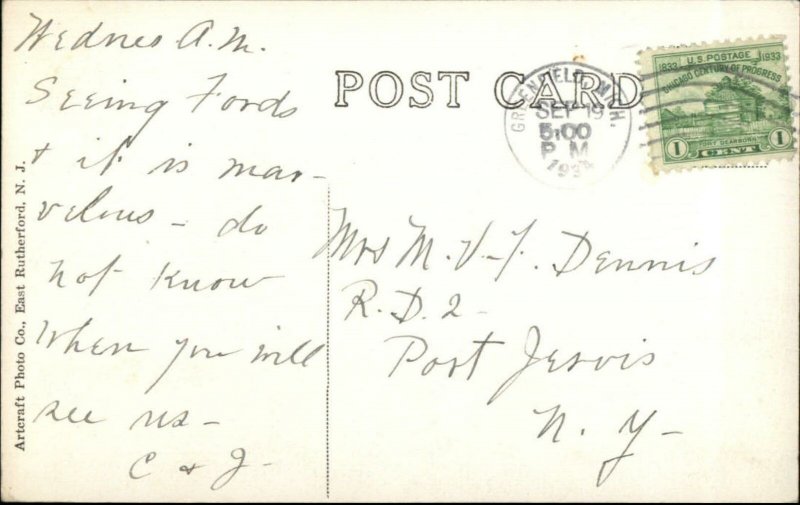 Wednes A.M.
Seeing Fords
+ it is mar-
velous - do
not know
when you will
see us -
C + J -
POST CARD
GREENFIELD, MICH.
SEP 19
5:00
P M
1934
U.S. POSTAGE
1833 1933
CHICAGO CENTURY OF PROGRESS
FORT DEARBORN
1 CENT 1
Mrs M. V-F. Dennis
R.D. 2-
Port Jervis
N. Y-
Artcraft Photo Co., East Rutherford, N. J.